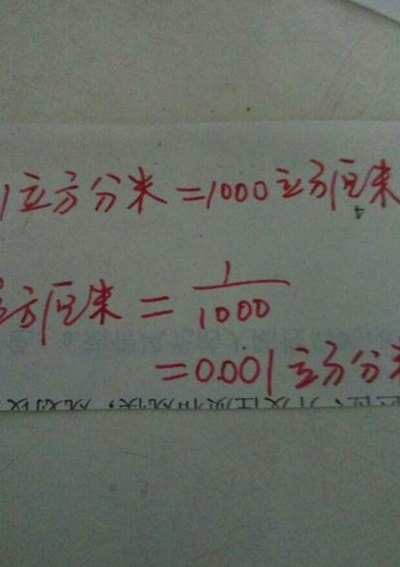 1立方分米=1000立方厘米
立方厘米=1/1000
=0.001立方分米